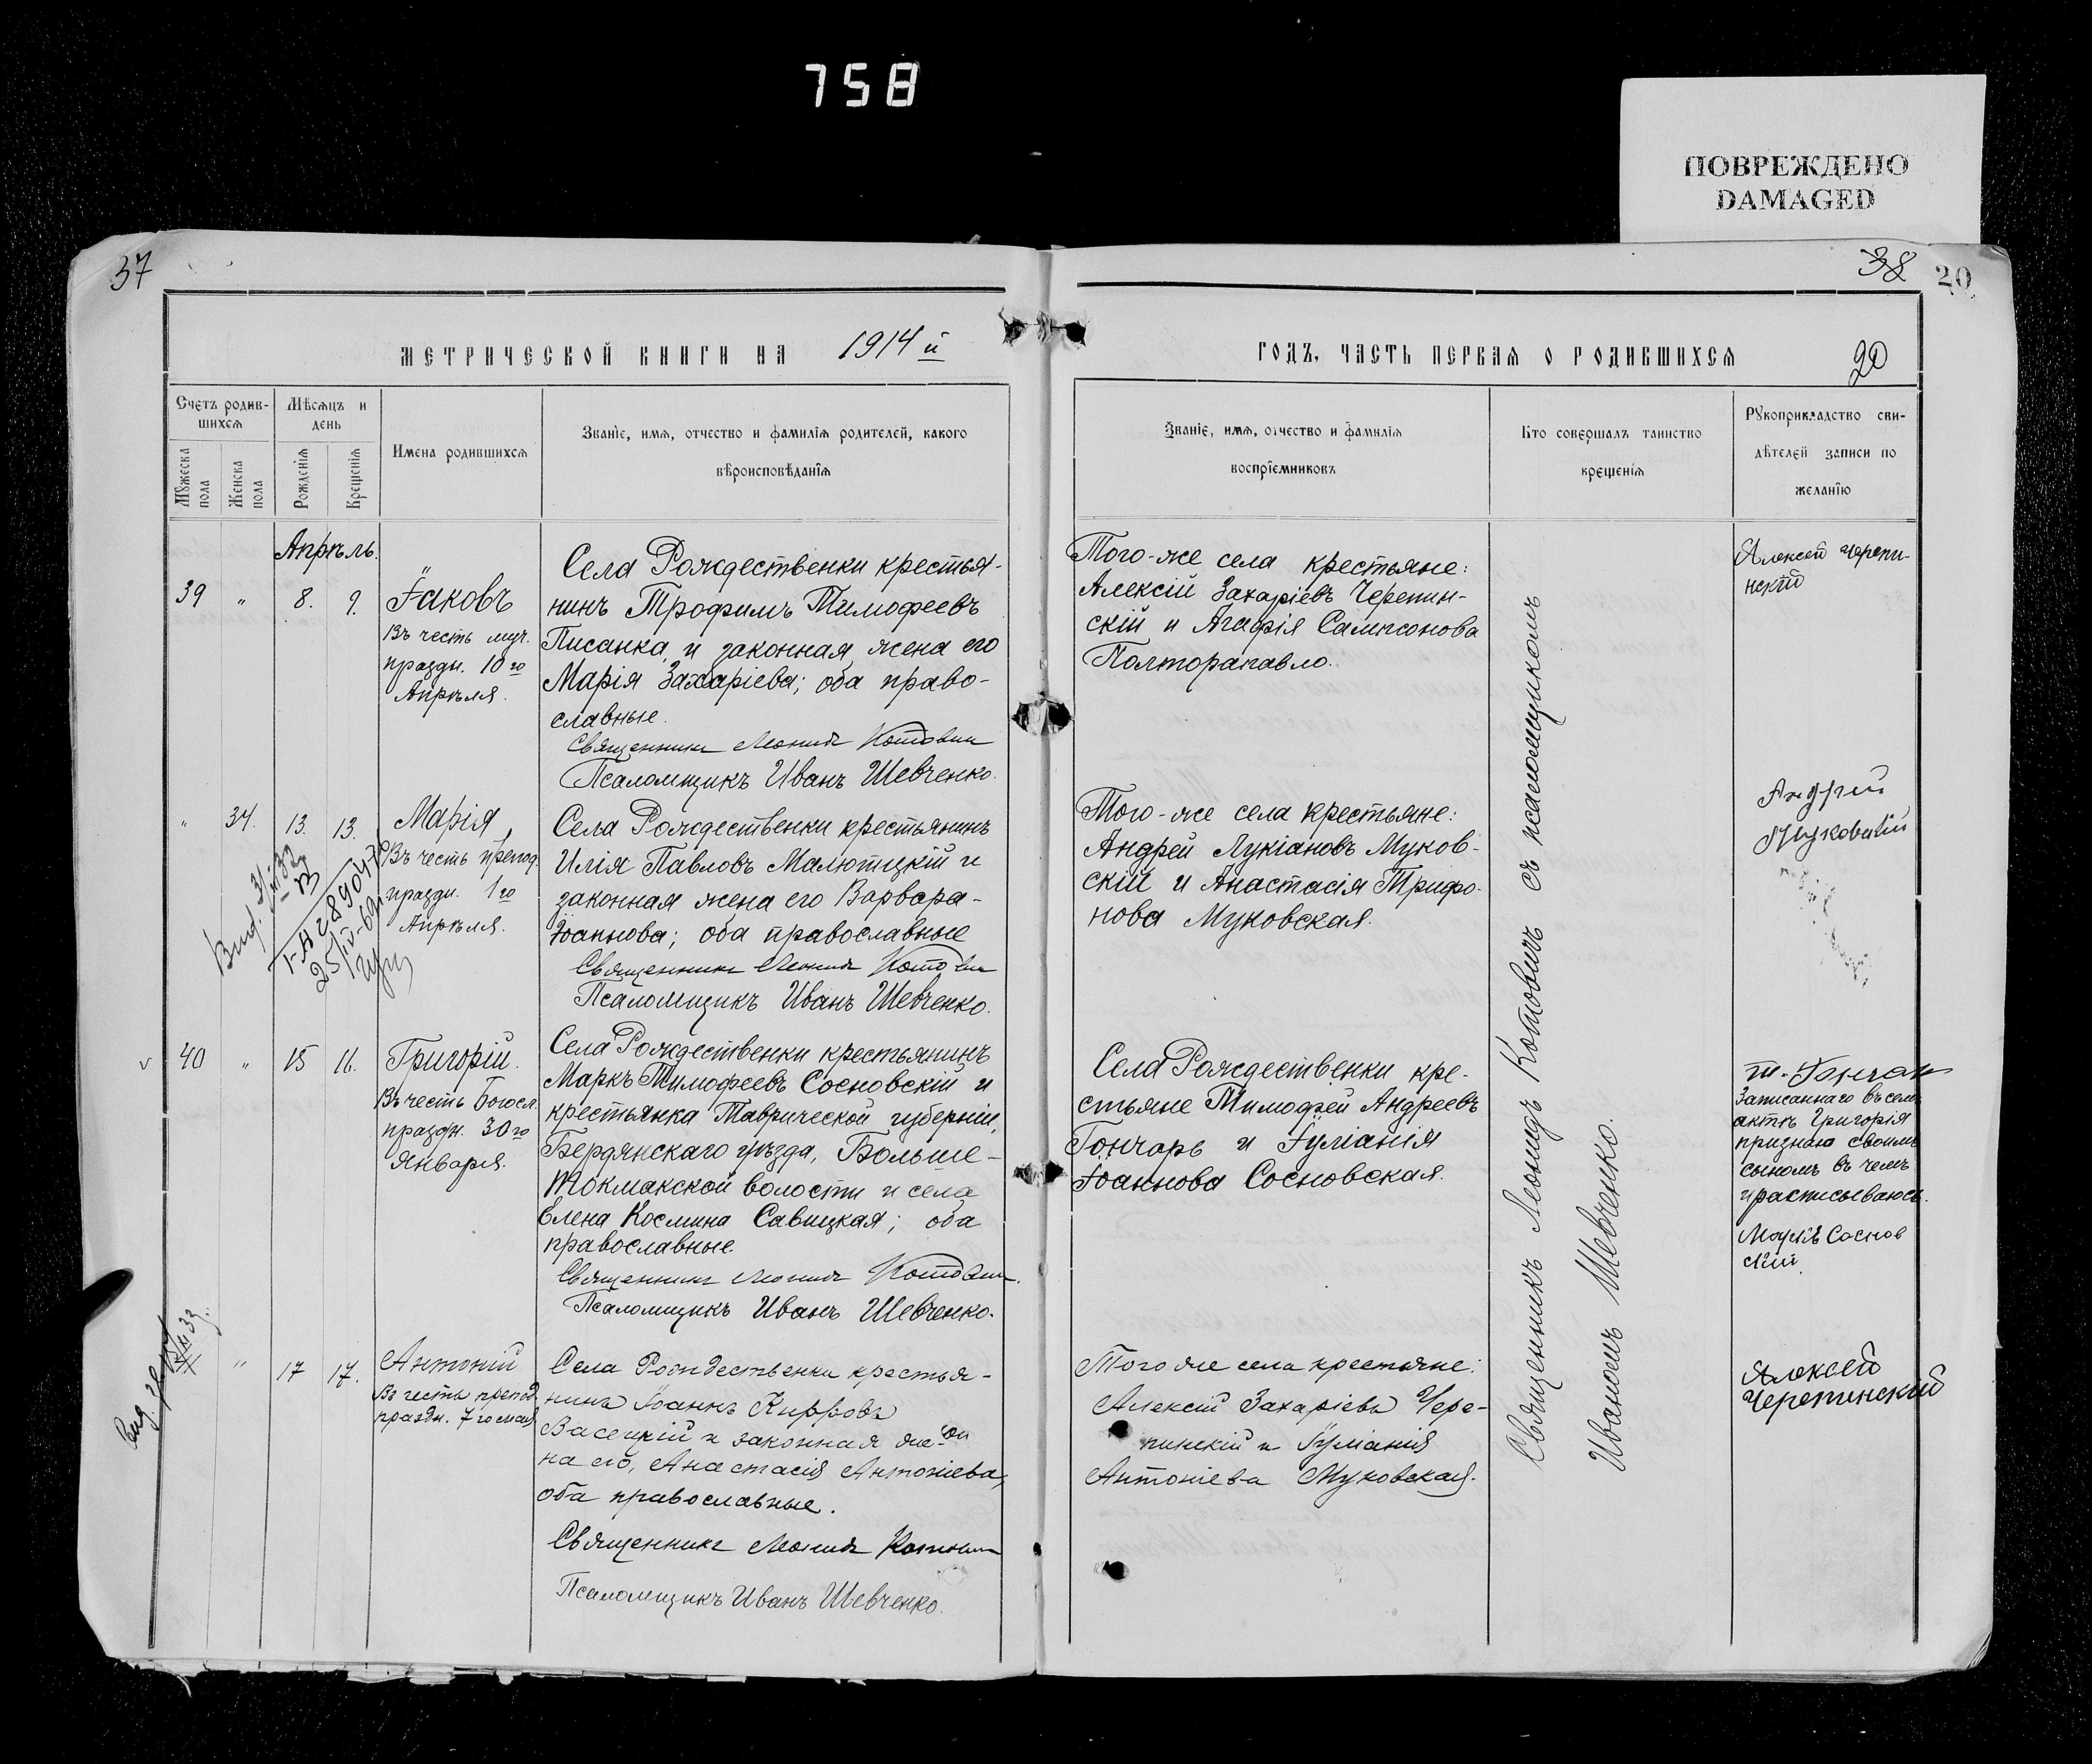 758
ПОВРЕЖДЕНО
DAMAGED
37
МЕТРИЧЕСКОЙ КНИГИ НА 1914 й
Счетъ родив-
шихся
Мужеска
пола
Женска
пола
Мѣсяцъ и
день
Рожденія
Крещенія
Имена родившихся
Званіе, имя, отчество и фамилія родителей, какого
вѣроисповѣданія
Апрѣль.
39 " 8. 9.
Іаковъ
Въ честь муч.
праздн. 10го
Апрѣля.
Села Рождественки крестья-
нинъ Трофимъ Тимофеевъ
Писанка и законная жена его
Марія Захаріева; оба право-
славные.
Священникъ Леонидъ Котовичъ
Псаломщикъ Иванъ Шевченко.
" 34. 13. 13.
Марія,
Въ честь препод.
праздн. 1го
Апрѣля.
Села Рождественки крестьянинъ
Илія Павловъ Малютицкій и
законная жена его Варвара-
Іоаннова; оба православные
Священникъ Леонидъ Котовичъ
Псаломщикъ Иванъ Шевченко.
25/IV-69г.
v 40 " 15 16.
Григорій.
Въ честь Богосл.
праздн. 30го
Января.
Села Рождественки крестьянинъ
Маркъ Тимофеевъ Сосновскій и
крестьянка Таврической губерніи,
Бердянскаго уѣзда, Больше-
Токмакской волости и села
Елена Космина Савицкая; оба
православные.
Священникъ Леонидъ Котовичъ.
Псаломщикъ Иванъ Шевченко.
" 17 17.
Антоній
Въ честь препод.
праздн. 7го мая
Села Рождественки крестья-
нинъ Іоаннъ Кирровъ
Васецкій и законная же-
на его, Анастасія Антоніева,
оба православные.
Священникъ Леонидъ Котовичъ
Псаломщикъ Иванъ Шевченко.
38 20
ГОДЪ, ЧАСТЬ ПЕРВАЯ О РОДИВШИХСЯ
20
Званіе, имя, отчество и фамилія
воспріемниковъ
Кто совершалъ таинство
крещенія
Рукоприкладство сви-
дѣтелей записи по
желанію
Того-же села крестьяне:
Алексій Захаріевъ Черепин-
скій и Агафія Сампсонова
Полторапавло.
Алексей Черепи-
нский
Того-же села крестьяне:
Андрей Лукіановъ Муков-
скій и Анастасія Трифо-
нова Муковская.
Андрей
Муковский
Села Рождественки кре-
стьяне Тимофей Андреевъ
Гончаръ и Іуліанія
Іоаннова Сосновская.
т. Гончар
Записаннаго въ семъ
актѣ Григорія
признаю своимъ
сыномъ въ чемъ
и расписываюсь.
Маркъ Соснов
ский
Того же села крестьяне:
Алексій Захаріевъ Чере-
пинскій и Іуліанія
Антоніева Муковская.
Алексей
Черепинскій
Священникъ Леонидъ Котовичъ съ псаломщикомъ
Иваномъ Шевченко.